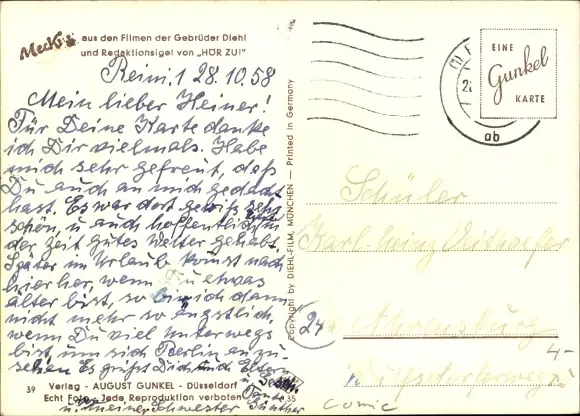 Mecki aus den Filmen der Gebrüder Diehl
und Redaktionsigel von „HÖR ZU!"
28.10.58
Mein lieber Heiner!
Für Deine Karte danke
ich Dir vielmals. Habe
mich sehr gefreut, daß
Du auch an mich gedacht
hast. Es war dort gewiß sehr
schön, u. auch hoffentlich
der Zeit gutes Wetter gehabt.
Später im Urlaub kommst nach
hierher, wenn Du etwas
älter bist, so bin ich dann
nicht mehr so ängstlich,
wenn Du viel Unterwegs
bist, um sich Berlin anzu-
sehen. Es grüßt Dich und Eltern
u. Tante
u. meiner Schwester Günther
39 Verlag - AUGUST GUNKEL - Düsseldorf
Echt Foto - Jede Reproduktion verboten 35
Copyright by DIEHL-FILM, MÜNCHEN — Printed in Germany
EINE
Gunkel
KARTE
ab
Schüler
Karl heinz
(24
Ahrensburg
4-
comic